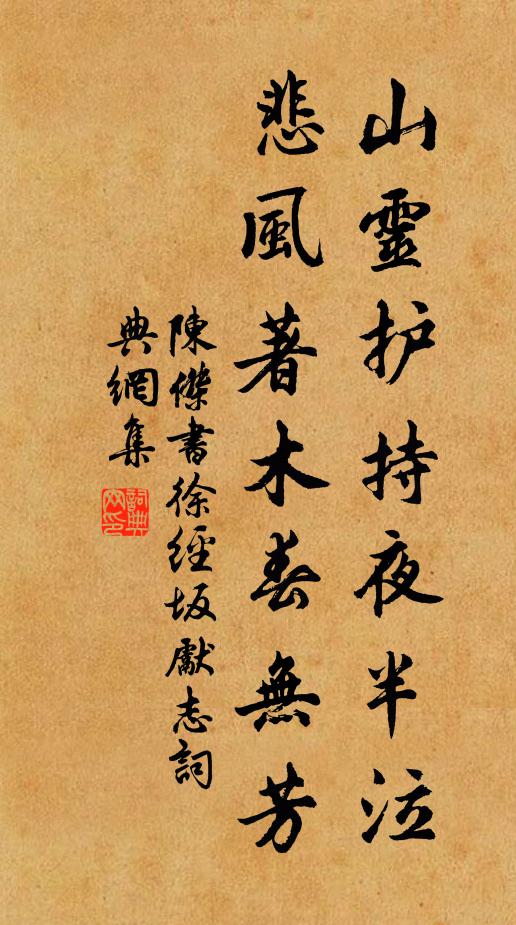 山靈护持夜半泣
悲風著木春無芳
陳傑書徐經坂獻志詞
典網集
詞典
网印